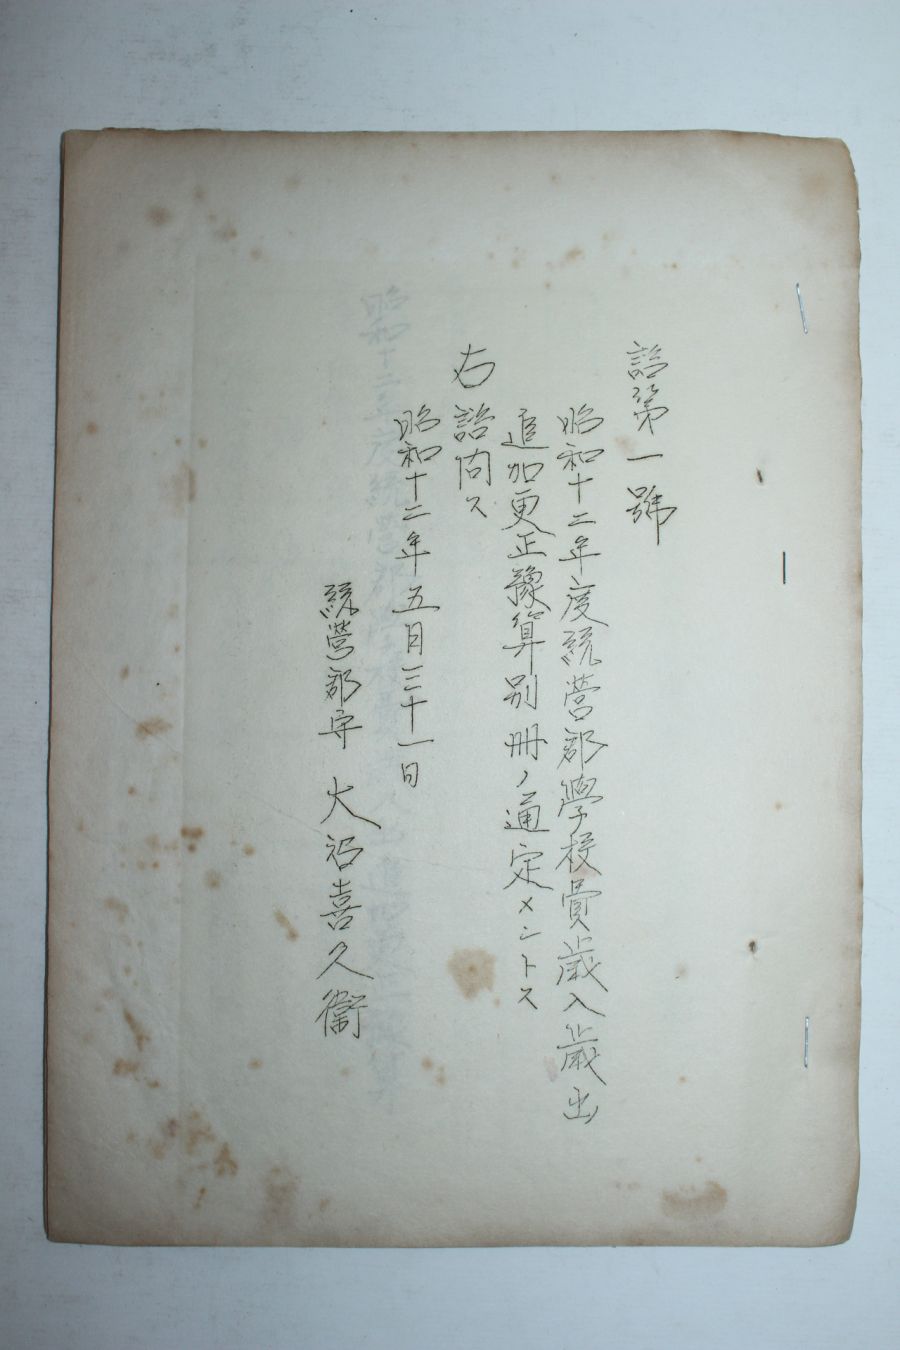 諮第一號
昭和十二年度統營郡學校費歳入歳出
追加更正豫算別冊ノ通定メントス
右諮問ス
昭和十二年五月三十一日
統營郡守 大 喜久衞